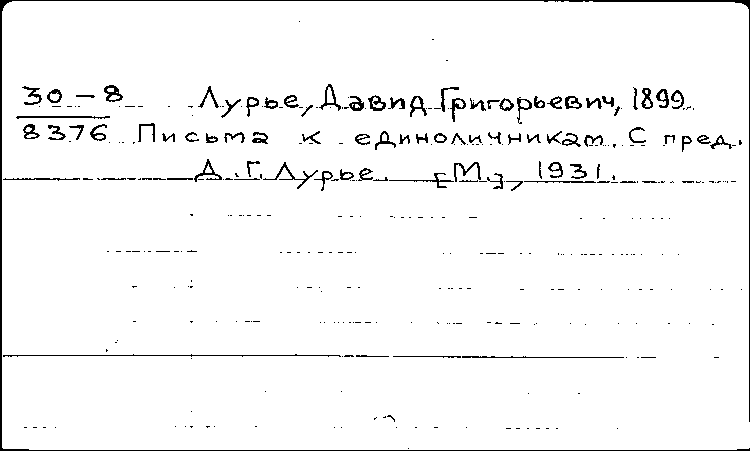 30-8 Лурье, Давид Григорьевич, 1899
8376 Письма к единоличникам. С пред.
Д.Г. Лурье. [М.], 1931.